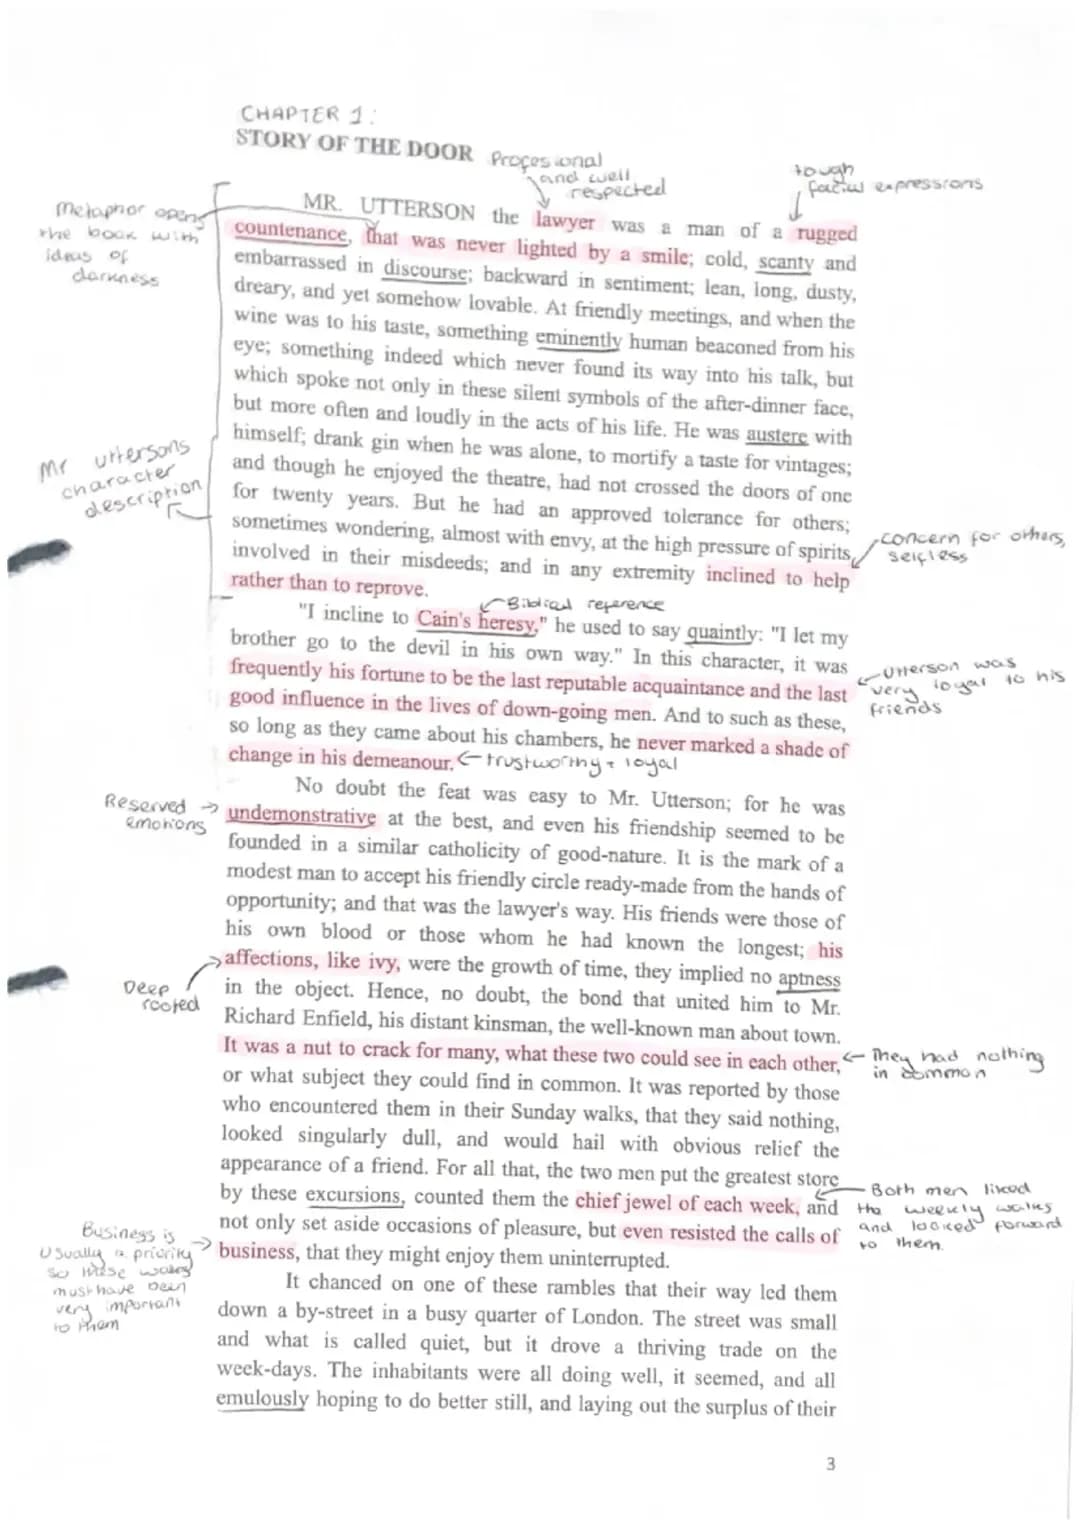 CHAPTER 1:
STORY OF THE DOOR
Profesional
and well
respected
tough
facial expressions
Metaphor opens
the book with
ideas of
darkness
MR. UTTERSON the lawyer was a man of a rugged
countenance, that was never lighted by a smile; cold, scanty and
embarrassed in discourse; backward in sentiment; lean, long, dusty,
dreary, and yet somehow lovable. At friendly meetings, and when the
wine was to his taste, something eminently human beaconed from his
eye; something indeed which never found its way into his talk, but
which spoke not only in these silent symbols of the after-dinner face,
but more often and loudly in the acts of his life. He was austere with
himself; drank gin when he was alone, to mortify a taste for vintages;
and though he enjoyed the theatre, had not crossed the doors of one
for twenty years. But he had an approved tolerance for others;
sometimes wondering, almost with envy, at the high pressure of spirits
involved in their misdeeds; and in any extremity inclined to help
rather than to reprove.
Mr uttersons
character
description
concern for others,
selfless
Biblical reference
"I incline to Cain's heresy," he used to say quaintly: "I let my
brother go to the devil in his own way." In this character, it was
frequently his fortune to be the last reputable acquaintance and the last
good influence in the lives of down-going men. And to such as these,
so long as they came about his chambers, he never marked a shade of
change in his demeanour. ← trustworthy + loyal
Utterson was
very loyal to his
friends
No doubt the feat was easy to Mr. Utterson; for he was
undemonstrative at the best, and even his friendship seemed to be
founded in a similar catholicity of good-nature. It is the mark of a
modest man to accept his friendly circle ready-made from the hands of
opportunity; and that was the lawyer's way. His friends were those of
his own blood or those whom he had known the longest; his
affections, like ivy, were the growth of time, they implied no aptness
in the object. Hence, no doubt, the bond that united him to Mr.
Richard Enfield, his distant kinsman, the well-known man about town.
It was a nut to crack for many, what these two could see in each other,
or what subject they could find in common. It was reported by those
who encountered them in their Sunday walks, that they said nothing,
looked singularly dull, and would hail with obvious relief the
appearance of a friend. For all that, the two men put the greatest store
by these excursions, counted them the chief jewel of each week, and
not only set aside occasions of pleasure, but even resisted the calls of
business, that they might enjoy them uninterrupted.
Reserved →
emotions
Deep
rooted
← They had nothing
in common
Both men liked
the weekly walks
and looked forward
to them.
Business is
usually a priority
so these walks
must have been
very important
to them
It chanced on one of these rambles that their way led them
down a by-street in a busy quarter of London. The street was small
and what is called quiet, but it drove a thriving trade on the
week-days. The inhabitants were all doing well, it seemed, and all
emulously hoping to do better still, and laying out the surplus of their
3